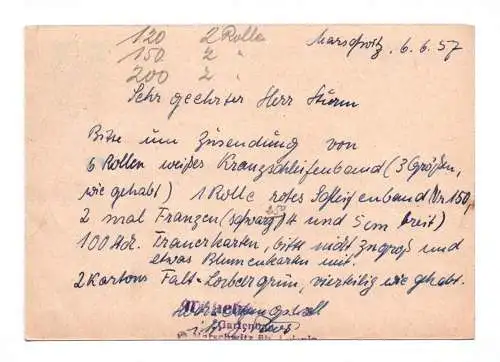 120 2 Rolle
150 2 "
200 2 "
Marschwitz, 6.6.57
Sehr geehrter Herr Sturm
Bitte um Zusendung von
6 Rollen weißes Kranzschleifenband (3 Größen,
wie gehabt) 1 Rolle rotes Schleifenband Nr 150,
2 mal Franzen (schwarz) 4 und 5 cm breit)
100 Trauerkarten, bitte nicht zu groß und
etwas Blumenkarten mit.
2 Kartons Falt-Lorbeergrün, vierteilig wie gehabt.
Gartenbau